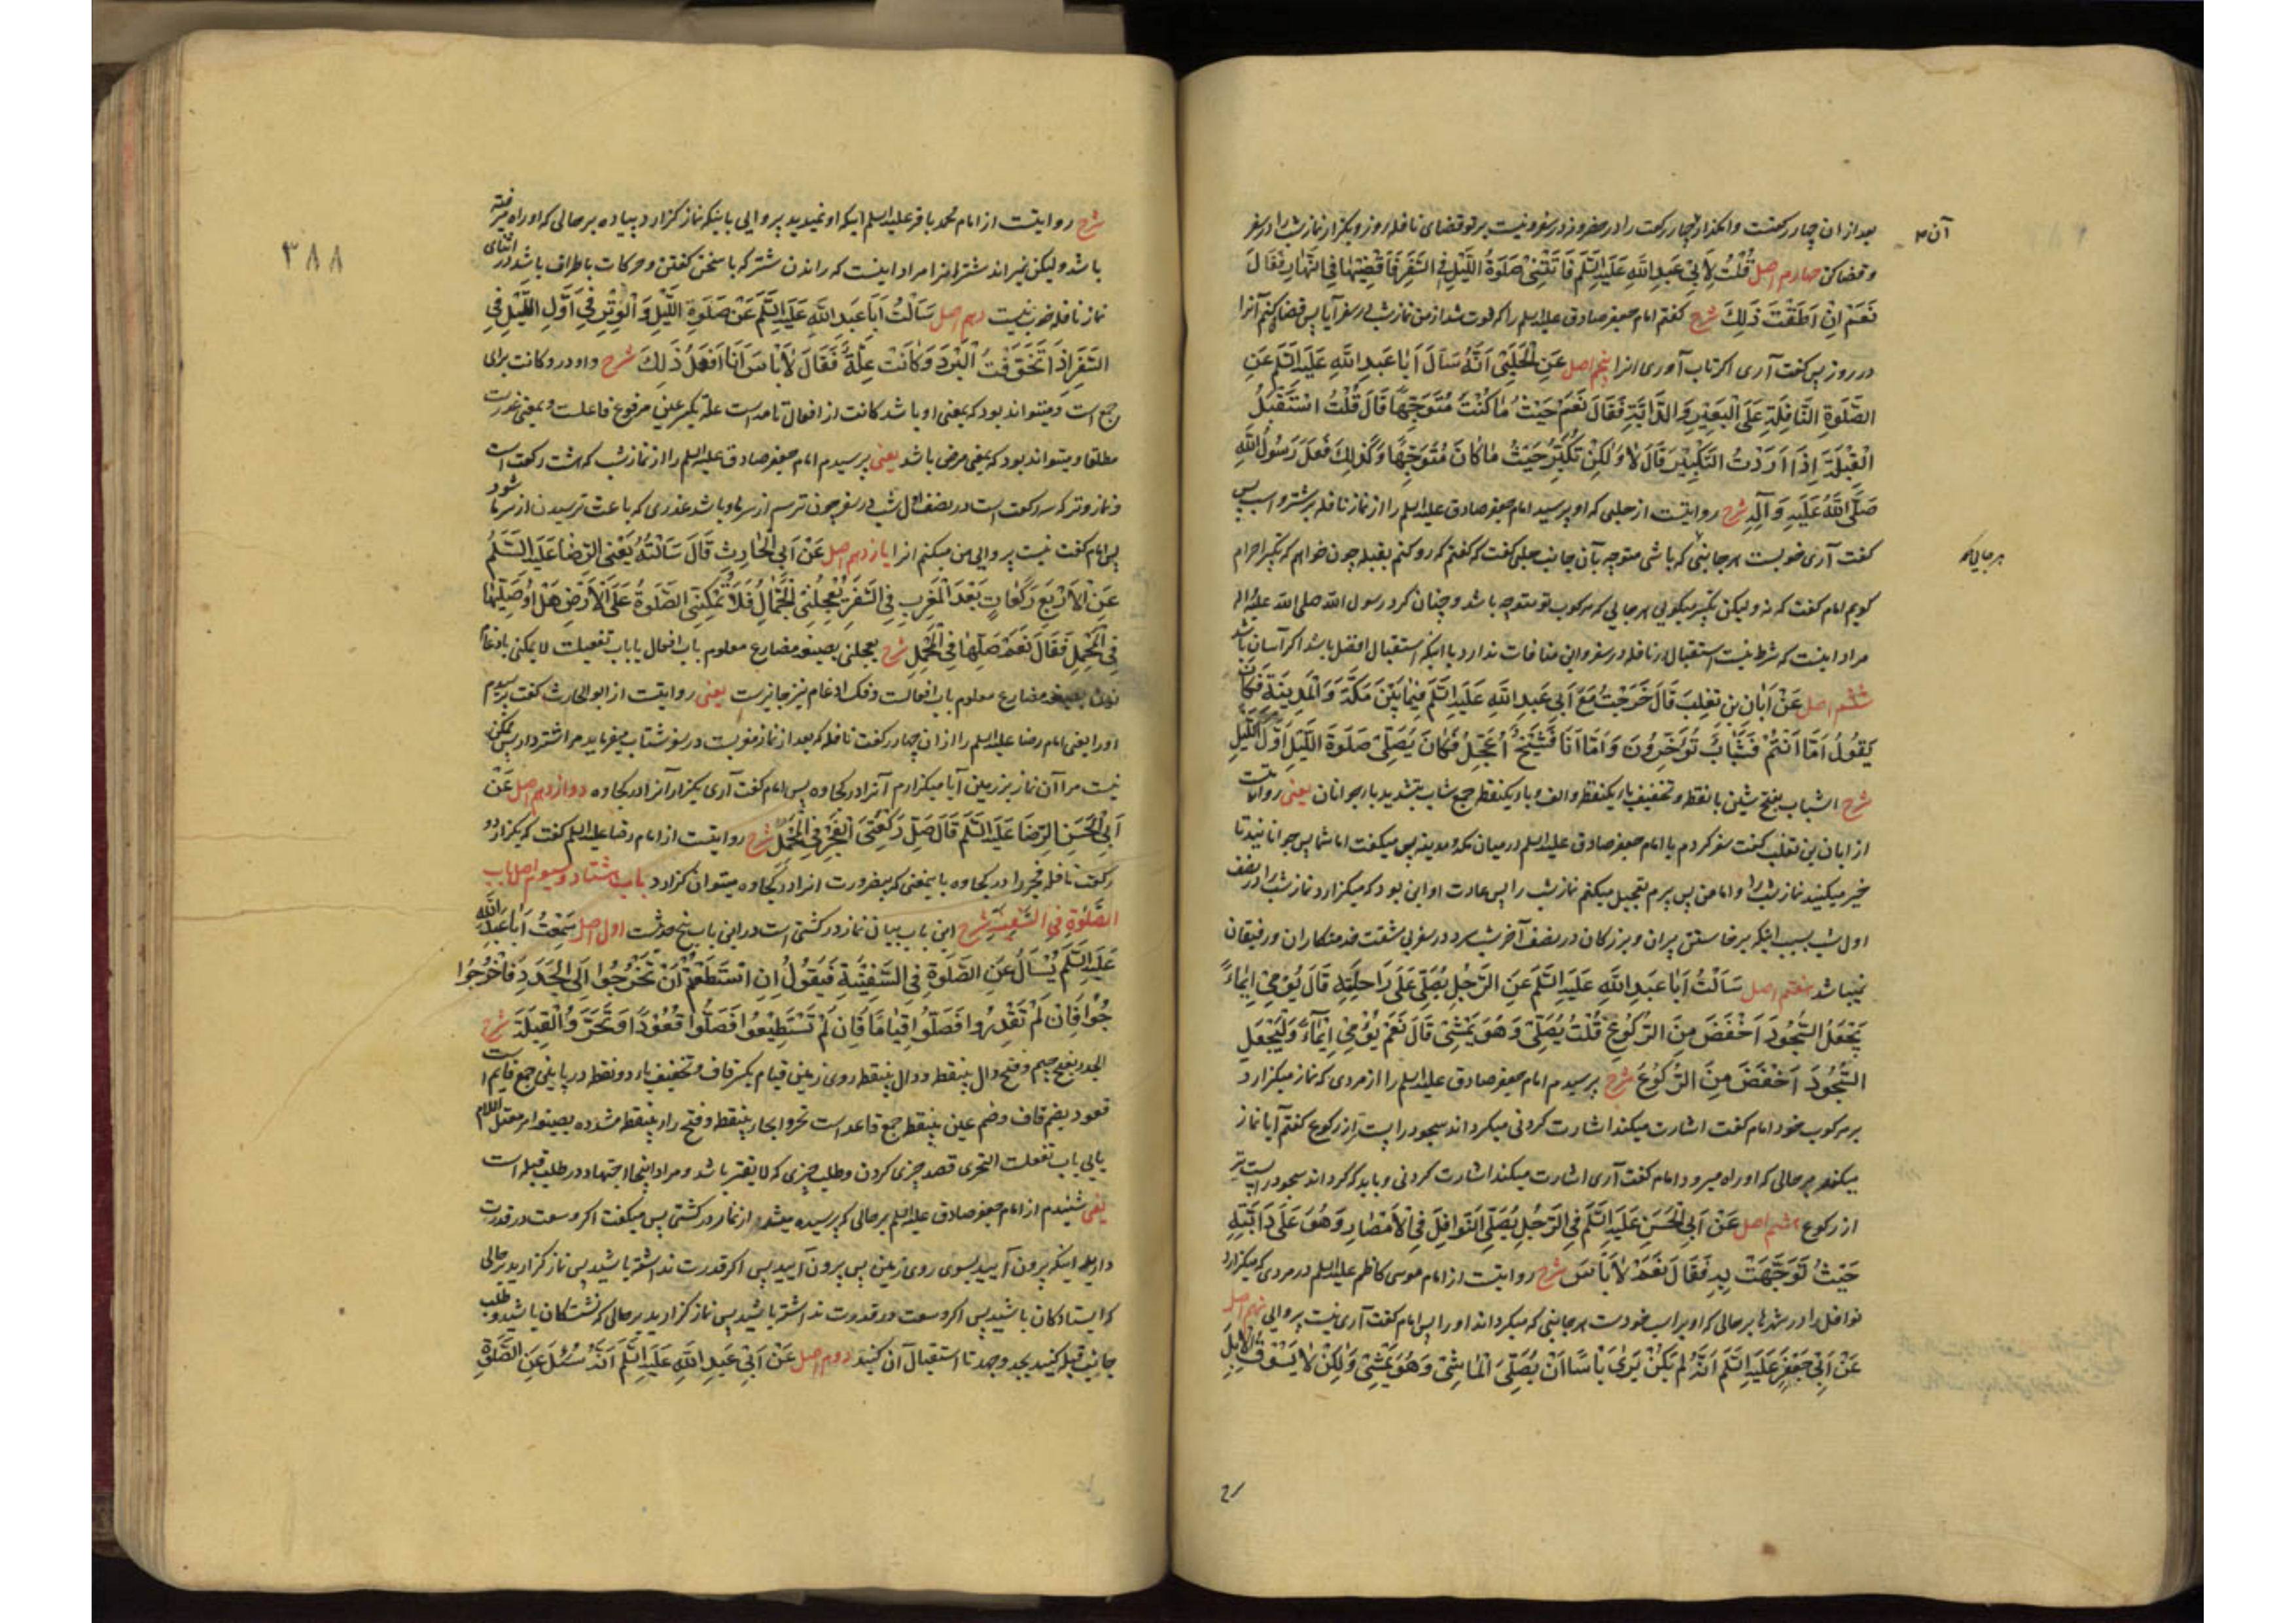 بعد از ان چهار رکعتست وامگذار چهار رکعت را در حضر و نه در سفر و نیست بر تو قضای نافله روز و بگزار نماز شب را در سفر
آن م
و قضا کن چهارم اصل قُلْتُ لِأَبِي عَبْدِ اللَّهِ عَلَيْهِ السَّلَم فَاتَتْنِي صَلَوةُ اللَّيْلِ فِي السَّفَرِ فَأَقْضِيهَا فِي النَّهَارِ فَقَالَ
نَعَمْ اِنْ اَطَقْتَ ذَلِكَ شرح گفتم امام جعفر صادق علیه السلم را که فوت شد از من نماز شب در سفر آیا پس قضا کنم آنرا
در روز پس گفت آری اگر تاب آوری انرا پنجم اصل عَنِ الْحَلَبِيِّ اَنَّهُ سَأَلَ اَبَا عَبْدِ اللَّهِ عَلَيْهِ السَّلَم عَنِ
الصَّلَوةِ النَّافِلَةِ عَلَى الْبَعِيرِ وَالدَّابَّةِ فَقَالَ نَعَمْ حَيْثُ مَا كُنْتَ مُتَوَجِّهًا قَالَ قُلْتُ اسْتَقْبِلُ
الْقِبْلَةَ اِذَا اَرَدْتُ التَّكْبِيرَ قَالَ لَا وَلَكِنْ تُكَبِّرُ حَيْثُ مَا كَانَ مُتَوَجِّهًا وَكَذَلِكَ فَعَلَ رَسُولُ اللَّهِ
صَلَّى اللَّهُ عَلَيْهِ وَآلِهِ شرح روایتست از حلبی که او پرسید امام جعفر صادق علیه السلم را از نماز نافله بر شتر و اسب پس
گفت آری خوبست هر جانبی که باشی متوجه بآن جانب حلبی گفت که گفتم که رو کنم بقبله چون خواهم که تکبیر احرام
هر جایی که
گویم امام گفت که نه ولیکن تکبیر میگویی هر جایی که مرکوب تو متوجه باشد و چنان کرد رسول الله صلی الله علیه اله
مراد اینست که شرط نیست استقبال در نافله در سفر و این منافات ندارد با اینکه استقبال افضل باشد اگر آسان باشد
ششم اصل عَنْ اَبَانِ بْنِ تَغْلِبَ قَالَ خَرَجْتُ مَعَ اَبِي عَبْدِ اللَّهِ عَلَيْهِ السَّلَم فِيمَا بَيْنَ مَكَّةَ وَالْمَدِينَةِ فَكَانَ
يَقُولُ اَمَّا اَنْتُمْ فَشَبَابٌ تُؤَخِّرُونَ وَاَمَّا اَنَا فَشَيْخٌ اُعَجِّلُ فَكَانَ يُصَلِّي صَلَوةَ اللَّيْلِ اَوَّلَ اللَّيْلِ
شرح الشباب بفتح شین با نقطه و تخفیف باء یکنقطه و الف و باء یکنقطه جمع شاب بتشدید باء جوانان یعنی روایتست
از ابان بن تغلب گفت سفر کردم با امام جعفر صادق علیه السلم در میان مکه و مدینه پس میگفت اما شما پس جوانانید تا
خیر میکنید نماز شب را و اما من پس پیرم تعجیل میکنم نماز شب را پس عادت او این بود که میگزارد نماز شب را در نصف
اول شب بسبب اینکه برخاستن پیران و بزرگان در نصف آخر شب سرد در سفر بی مشقت خدمتکاران و رفیقان
نمیباشد هفتم اصل سَأَلْتُ اَبَا عَبْدِ اللَّهِ عَلَيْهِ السَّلَم عَنِ الرَّجُلِ يُصَلِّي عَلَى رَاحِلَتِهِ قَالَ يُومِئُ اِيمَاءً
يَجْعَلُ السُّجُودَ اَخْفَضَ مِنَ الرُّكُوعِ قُلْتُ يُصَلِّي وَهُوَ يَمْشِي قَالَ نَعَمْ يُومِئُ اِيمَاءً وَلْيَجْعَلِ
السُّجُودَ اَخْفَضَ مِنَ الرُّكُوعِ شرح پرسیدم امام جعفر صادق علیه السلم را از مردی که نماز میگزارد
بر مرکوب خود امام گفت اشارت میکند اشارت کردنی میگرداند سجود را پست تر از رکوع گفتم آیا نماز
میکند بر حالی که او راه میرود امام گفت آری اشارت میکند اشارت کردنی و باید که گرداند سجود را پست تر
از رکوع هشتم اصل عَنْ اَبِي الْحَسَنِ عَلَيْهِ السَّلَم فِي الرَّجُلِ يُصَلِّي النَّوَافِلَ فِي الْاَمْصَارِ وَهُوَ عَلَى دَابَّتِهِ
حَيْثُ تَوَجَّهَتْ بِهِ فَقَالَ نَعَمْ لَا بَأْسَ شرح روایتست از امام موسی کاظم علیه السلم در مردی که میگزارد
نوافل را در شهرها بر حالی که او بر اسب خودست هر جانبی که میگرداند او را پس امام گفت آری نیست پروایی نهم اصل
عَنْ اَبِي جَعْفَرٍ عَلَيْهِ السَّلَم اَنَّهُ لَمْ يَكُنْ يَرَى بَأْسًا اَنْ يُصَلِّيَ الْمَاشِي وَهُوَ يَمْشِي وَلَكِنْ لَا يَسُوقُ الْاِبِلَ
۳۸۸
شرح روایتست از امام محمد باقر علیه السلم اینکه او نمیدید پروایی باینکه نماز گزارد پیاده بر حالی که او راه میرفته
باشد ولیکن نمیراند شتر انرا مراد اینست که راندن شتر که با سخن گفتن و حرکات باطراف باشد در اثنای
نماز نافله خوب نیست دهم اصل سَأَلْتُ اَبَا عَبْدِ اللَّهِ عَلَيْهِ السَّلَم عَنْ صَلَوةِ اللَّيْلِ وَالْوَتْرِ فِي اَوَّلِ اللَّيْلِ فِي
السَّفَرِ اِذَا تَخَوَّفْتُ الْبَرْدَ وَكَانَتْ عِلَّةٌ فَقَالَ لَا بَأْسَ اَنَا اَفْعَلُ ذَلِكَ شرح واو در و کانت برای
جمع است و میتواند بود که بمعنی او باشد کانت از افعال تامه است علة بکسر عین مرفوع فاعلست و بمعنی عذرست
مطلقا و میتواند بود که بمعنی مرض باشد یعنی پرسیدم امام جعفر صادق علیه السلم را از نماز شب که هشت رکعت است
و نماز وتر که سه رکعت است در نصف اول شب در سفر چون ترسم از سرما و باشد عذری که باعث ترسیدن از سرما شود
پس امام گفت نیست پروایی من میکنم انرا یازدهم اصل عَنْ اَبِي الْحَارِثِ قَالَ سَأَلْتُهُ يَعْنِي الرِّضَا عَلَيْهِ السَّلَمُ
عَنِ الْاَرْبَعِ رَكَعَاتٍ بَعْدَ الْمَغْرِبِ فِي السَّفَرِ يُعْجِلُنِي الْجَمَّالُ فَلَا تُمْكِنُنِي الصَّلَوةُ عَلَى الْاَرْضِ هَلْ اُصَلِّيهَا
فِي الْمَحْمِلِ فَقَالَ نَعَمْ صَلِّهَا فِي الْمَحْمِلِ شرح یعجلنی بصیغه مضارع معلوم باب افعال یا باب تفعیلست لا یمکنی بادغام
نون بصیغه مضارع معلوم باب افعالست و فک ادغام نیز جایز است یعنی روایتست از ابو الحارث گفت پرسیدم
او را یعنی امام رضا علیه السلم را از ان چهار رکعت نافله که بعد از نماز مغربست در سفر شتاب میفرماید مرا شتردار پس ممکن
نیست مرا آن نماز بر زمین آیا میگزارم آنرا در کجاوه پس امام گفت آری بگزار آنرا در کجاوه دوازدهم اصل عَنْ
اَبِي الْحَسَنِ الرِّضَا عَلَيْهِ السَّلَم قَالَ صَلِّ رَكْعَتَيِ الْفَجْرِ فِي الْمَحْمِلِ شرح روایتست از امام رضا علیه السلم گفت که بگزار دو
رکعت نافله فجر را در کجاوه باینمعنی که بیضرورت انرا در کجاوه میتوان گزارد باب هشتاد و سیوم اصل باب
الصَّلَوةِ فِي السَّفِينَةِ شرح این باب بیان نماز در کشتی است در این باب پنج حدیث است اول اصل سَمِعْتُ اَبَا عَبْدِ اللَّهِ
عَلَيْهِ السَّلَم يُسْأَلُ عَنِ الصَّلَوةِ فِي السَّفِينَةِ فَيَقُولُ اِنِ اسْتَطَعْتُمْ اَنْ تَخْرُجُوا اِلَى الْجَدَدِ فَاخْرُجُوا
فَاِنْ لَمْ تَقْدِرُوا فَصَلُّوا قِيَامًا فَاِنْ لَمْ تَسْتَطِيعُوا فَصَلُّوا قُعُودًا وَتَحَرَّوُا الْقِبْلَةَ شرح
الجدد بفتح جیم و فتح دال بینقطه و دال بینقطه روی زمین قیام بکسر قاف و تخفیف یاء دو نقطه در پایین جمع قایم است
قعود بضم قاف و ضم عین بینقطه جمع قاعد است تحروا بحاء بینقطه و فتح راء بینقطه مشدده بصیغه امر معتل اللام
یایی باب تفعلست التحری قصد چیزی کردن و طلب چیزی که لایقتر باشد و مراد اینجا اجتهاد در طلب قبله است
یعنی شنیدم از امام جعفر صادق علیه السلم بر حالی که پرسیده میشد از نماز در کشتی پس میگفت اگر وسعت در قدرت
دارید اینکه بیرون آیید بسوی روی زمین پس بیرون آیید پس اگر قدرت نداشته باشید پس نماز گزارید بر حالی
که ایستادگان باشید پس اگر وسعت در قدرت نداشته باشید پس نماز گزارید بر حالی که نشستگان باشید و طلب
جانب قبله کنید بجد و جهد تا استقبال آن کنید دوم اصل عَنْ اَبِي عَبْدِ اللَّهِ عَلَيْهِ السَّلَم اَنَّهُ سُئِلَ عَنِ الصَّلَوةِ